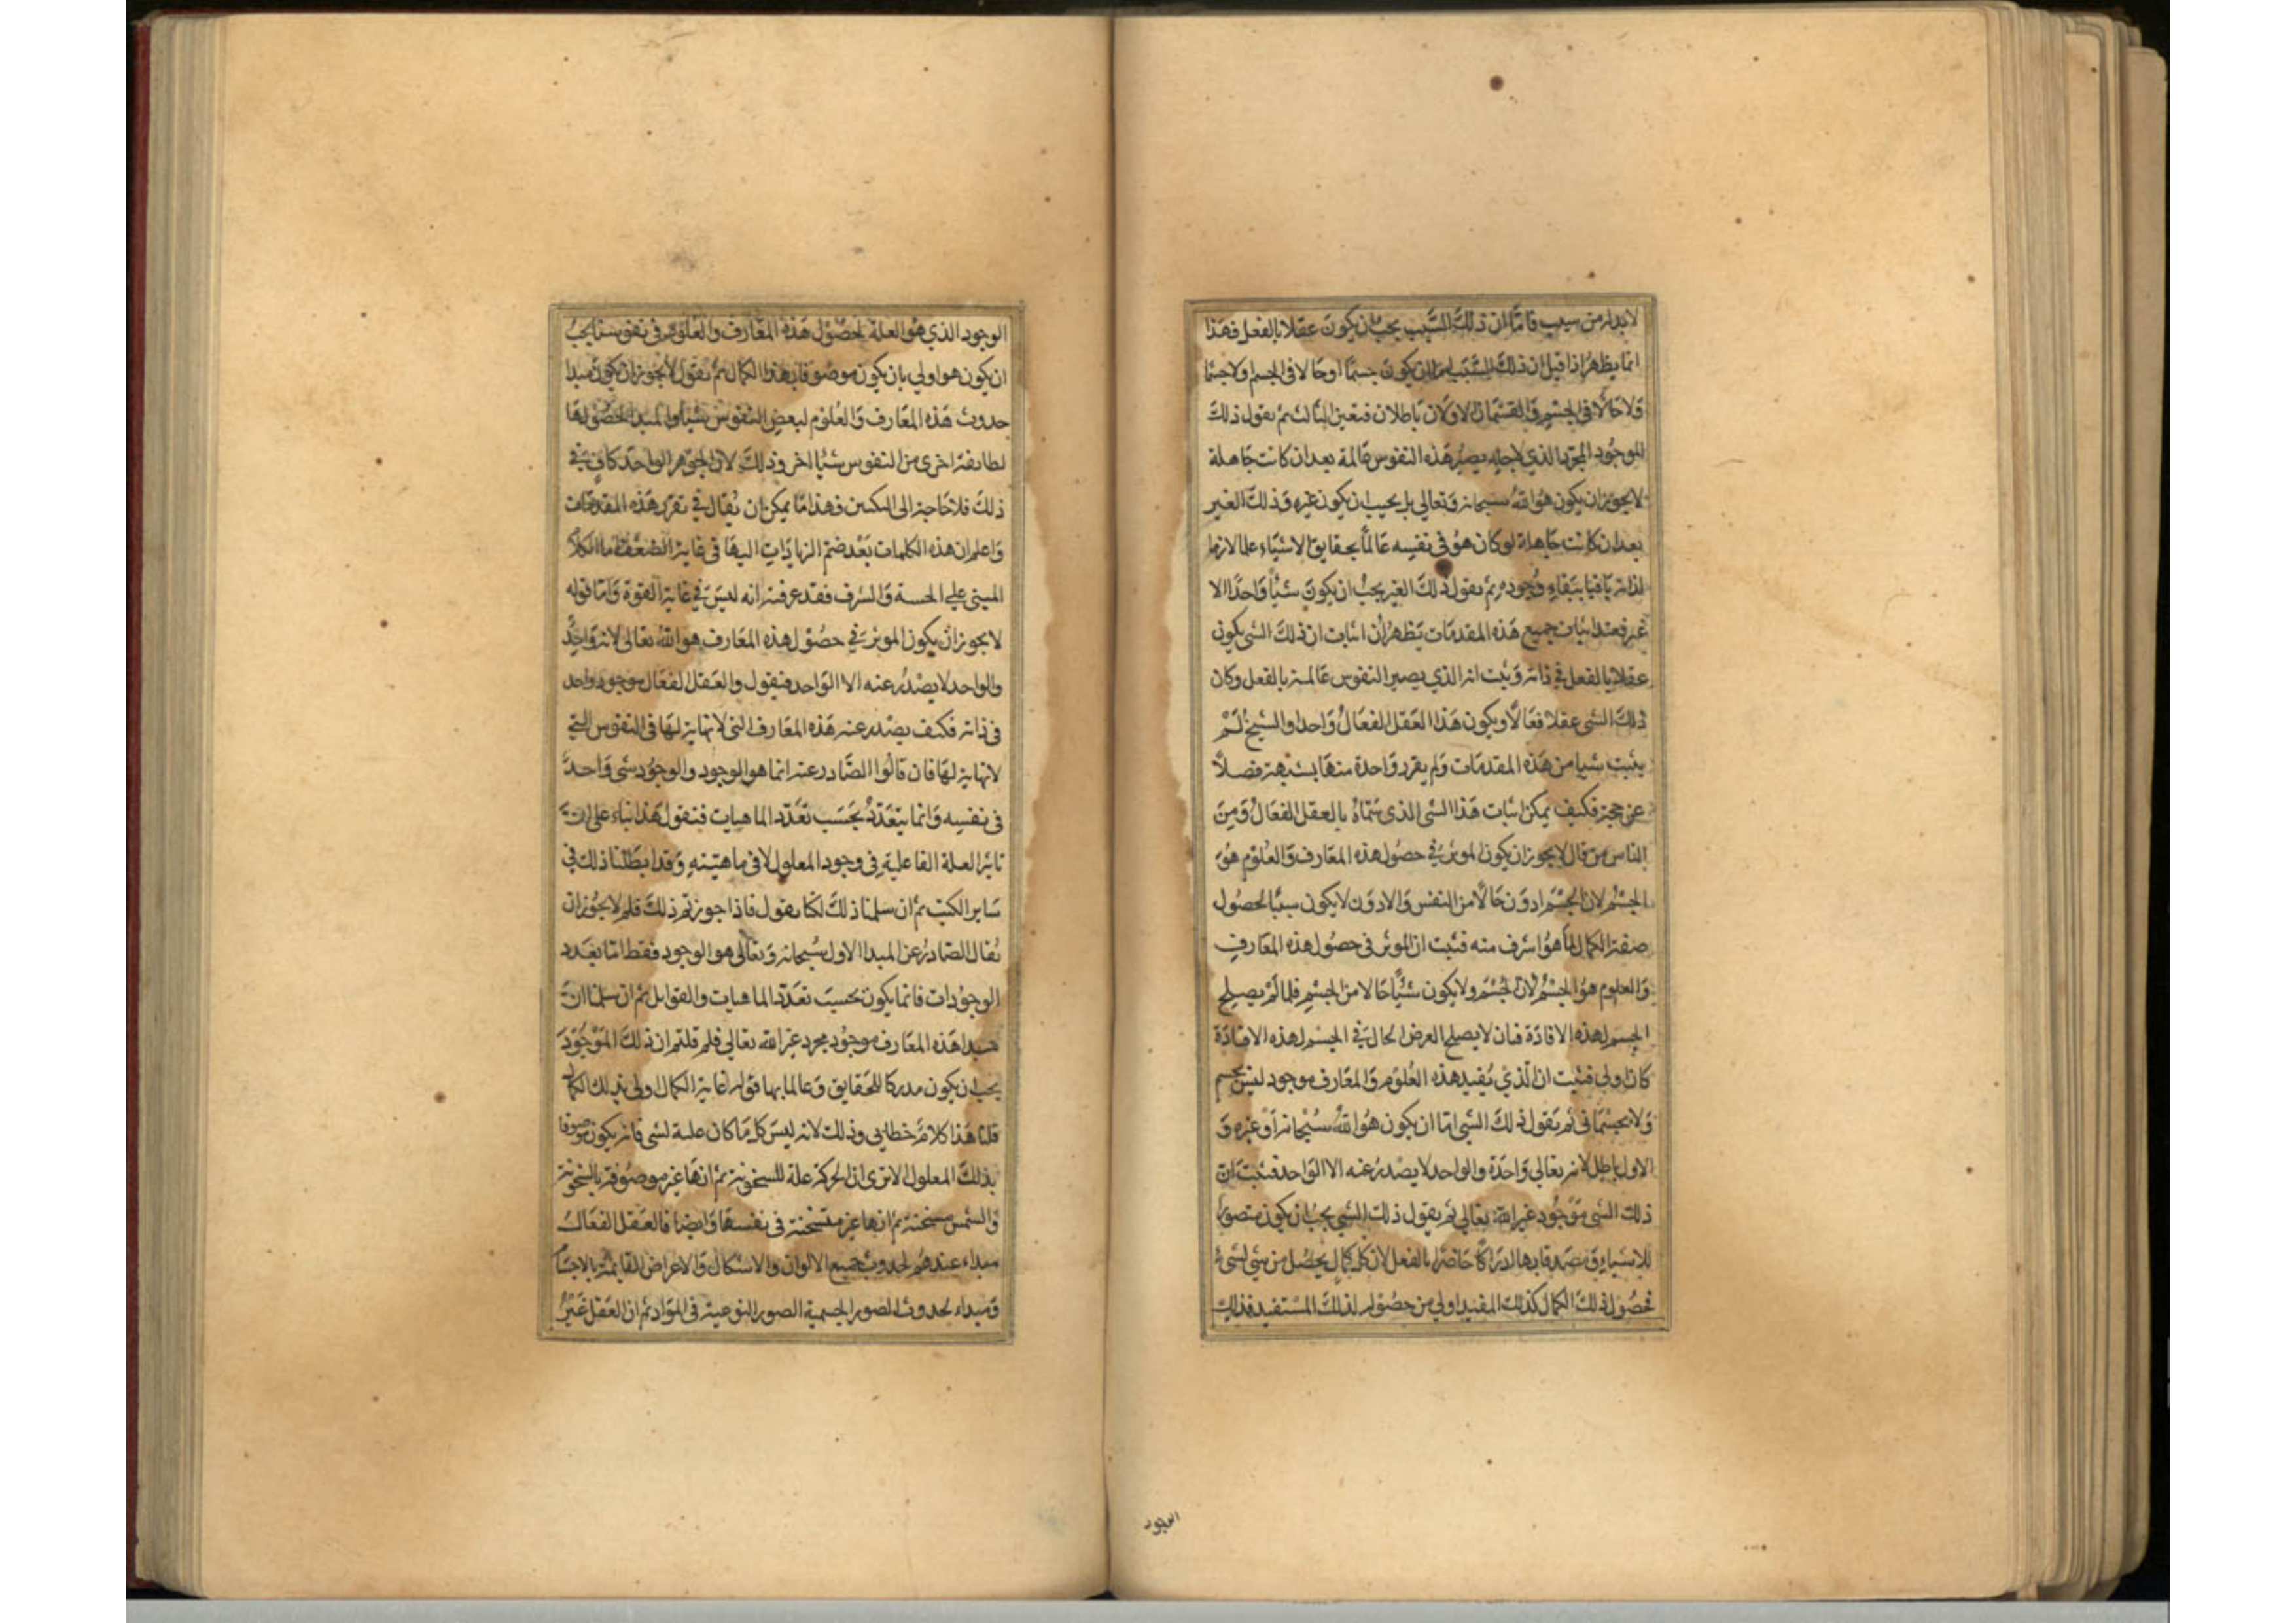 لابد له من سبب فاما ان ذلك السبب يجب ان يكون عقلا بالفعل فهذا
انما يظهر اذا قيل ان ذلك السبب اما ان يكون جسما او حالا في الجسم ولا جسما
ولا حالا في الجسم والقسمان الاولان باطلان فتعين الثالث ثم نقول ذلك
الموجود المجرد الذي لاجله يصير هذه النفوس عالمة بعد ان كانت جاهلة
لا يجوز ان يكون هو الله سبحانه وتعالى بل يجب ان يكون غيره وذلك الغير
بعد ان كانت جاهلة لو كان هو في نفسه عالما بحقايق الاشياء علما لازما
لذاته باقيا ببقاء وجوده ثم نقول ذلك الغير يجب ان يكون شيأ واحدا لا
غير فعند اثبات جميع هذه المقدمات يظهر ان اثبات ان ذلك الشي يكون
عقلا بالفعل في ذاته وثبت انه الذي يصير النفوس عالمة بالفعل وكان
ذلك الشي عقلا فعالا ويكون هذا العقل الفعال واحدا والشيخ لم
يثبت شيا من هذه المقدمات ولم يقرر واحدة منها بشبهة فضلا
عن حجة فكيف يمكن اثبات هذا الشي الذي سماه بالعقل الفعال ومن
الناس من قال لا يجوز ان يكون الموثر في حصول هذه المعارف والعلوم هو
الجسم لان الجسم ادون حالا من النفس والادون لا يكون سببا لحصول
صفة الكمال لما هو اشرف منه فثبت ان الموثر في حصول هذه المعارف
والعلوم هو الجسم لان الجسم ولا يكون شيأ حالا من الجسم فلما لم يصلح
الجسم لهذه الافادة فبان لا يصلح العرض الحال في الجسم لهذه الافادة
كان اولى فثبت ان الذي يفيد هذه العلوم والمعارف موجود ليس بجسم
ولا بجسماني ثم نقول ذلك الشي اما ان يكون هو الله سبحانه او غيره و
الاول باطل لانه تعالى واحدة والواحد لا يصدر عنه الا الواحد فثبت ان
ذلك الشي موجود غير الله تعالى ثم نقول ذلك الشي يجب ان يكون متصورا
للاشياء ومصدقا بها ادراكا حاضرا بالفعل لان كل كمال يحصل من شي لشي
فحصول ذلك الكمال كذلك المفيد اولى من حصوله لذلك المستفيد فذلك
الوجود
الوجود الذي هو العلة لحصول هذه المعارف والعلوم في نفوسنا يجب
ان يكون هو اولى بان يكون موصوفا بهذا الكمال ثم نقول لا يجوز ان يكون مبدا
حدوث هذه المعارف والعلوم لبعض النفوس شيأ والمبدا لحصولها
لطايفة اخرى من النفوس شيأ اخر وذلك لان الجوهر الواحد كاف في
ذلك فلا حاجة الى التكثير فهذا ما يمكن ان يقال في تقرير هذه المقدمات
واعلم ان هذه الكلمات بعد ضم الزيادات اليها في غاية الضعف اما الكلام
المبني على الخسة والشرف فقد عرفت انه ليس في غاية القوة واما قوله
لا يجوز ان يكون الموثر في حصول هذه المعارف هو الله تعالى لانه واحد
والواحد لا يصدر عنه الا الواحد فنقول والعقل الفعال موجود واحد
في ذاته فكيف يصدر عنه هذه المعارف التي لا نهاية لها في النفوس التي
لا نهاية لها فان قالوا الصادر عنه انما هو الوجود والوجود شي واحد
في نفسه وانما يتعدد بحسب تعدد الماهيات فنقول هذا بناء على ان
تاثير العلة الفاعلية في وجود المعلول لا في ماهيته وقد ابطلنا ذلك في
ساير الكتب ثم ان سلمنا ذلك لكنا نقول فاذا جوزتم ذلك فلم لا يجوز ان
يقال الصادر عن المبدا الاول سبحانه وتعالى هو الوجود فقط اما تعدد
الوجودات فانما يكون بحسب تعدد الماهيات والقوابل ثم ان سلمنا ان
مبدا هذه المعارف موجود مجرد غير الله تعالى فلم قلتم ان ذلك الموجود
يجب ان يكون مدركا للحقايق وعالما بها قوله غاية الكمال اولى بذلك الكمال
قلنا هذا كلام خطابي وذلك لانه ليس كل ما كان علة لشي فانه يكون موصوفا
بذلك المعلول الا ترى ان الحركة علة للسخونة ثم انها غير موصوفة بالسخونة
والشمس مسخنة ثم انها غير متسخنة في نفسها وايضا فالعقل الفعال
مبداء عندهم لحدوث جميع الالوان والاشكال والاعراض القايمة بالاجسام
ومبداء لحدوث الصور الجسمية الصور النوعية في المواد ثم ان العقل غير